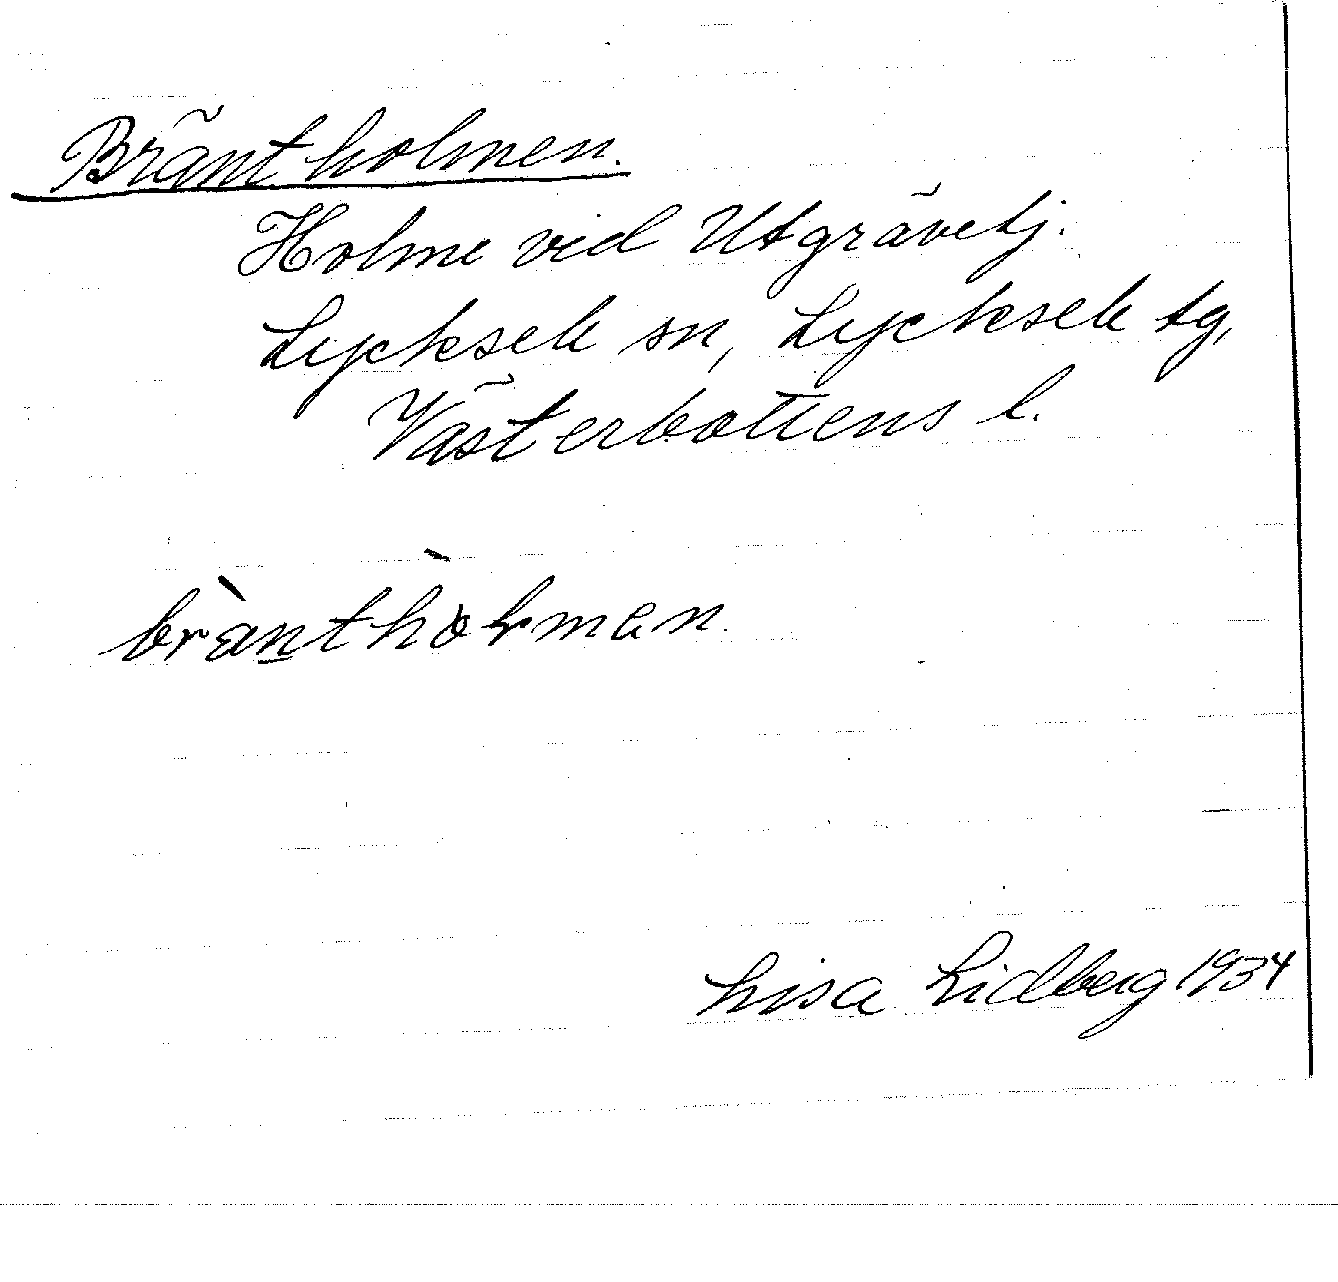 Bräntholmen.
Holme vid Utgrävetj.
Lycksele sn, Lycksele tg,
Västerbottens l.
brànthòlmen.
Lisa Lidberg 1934